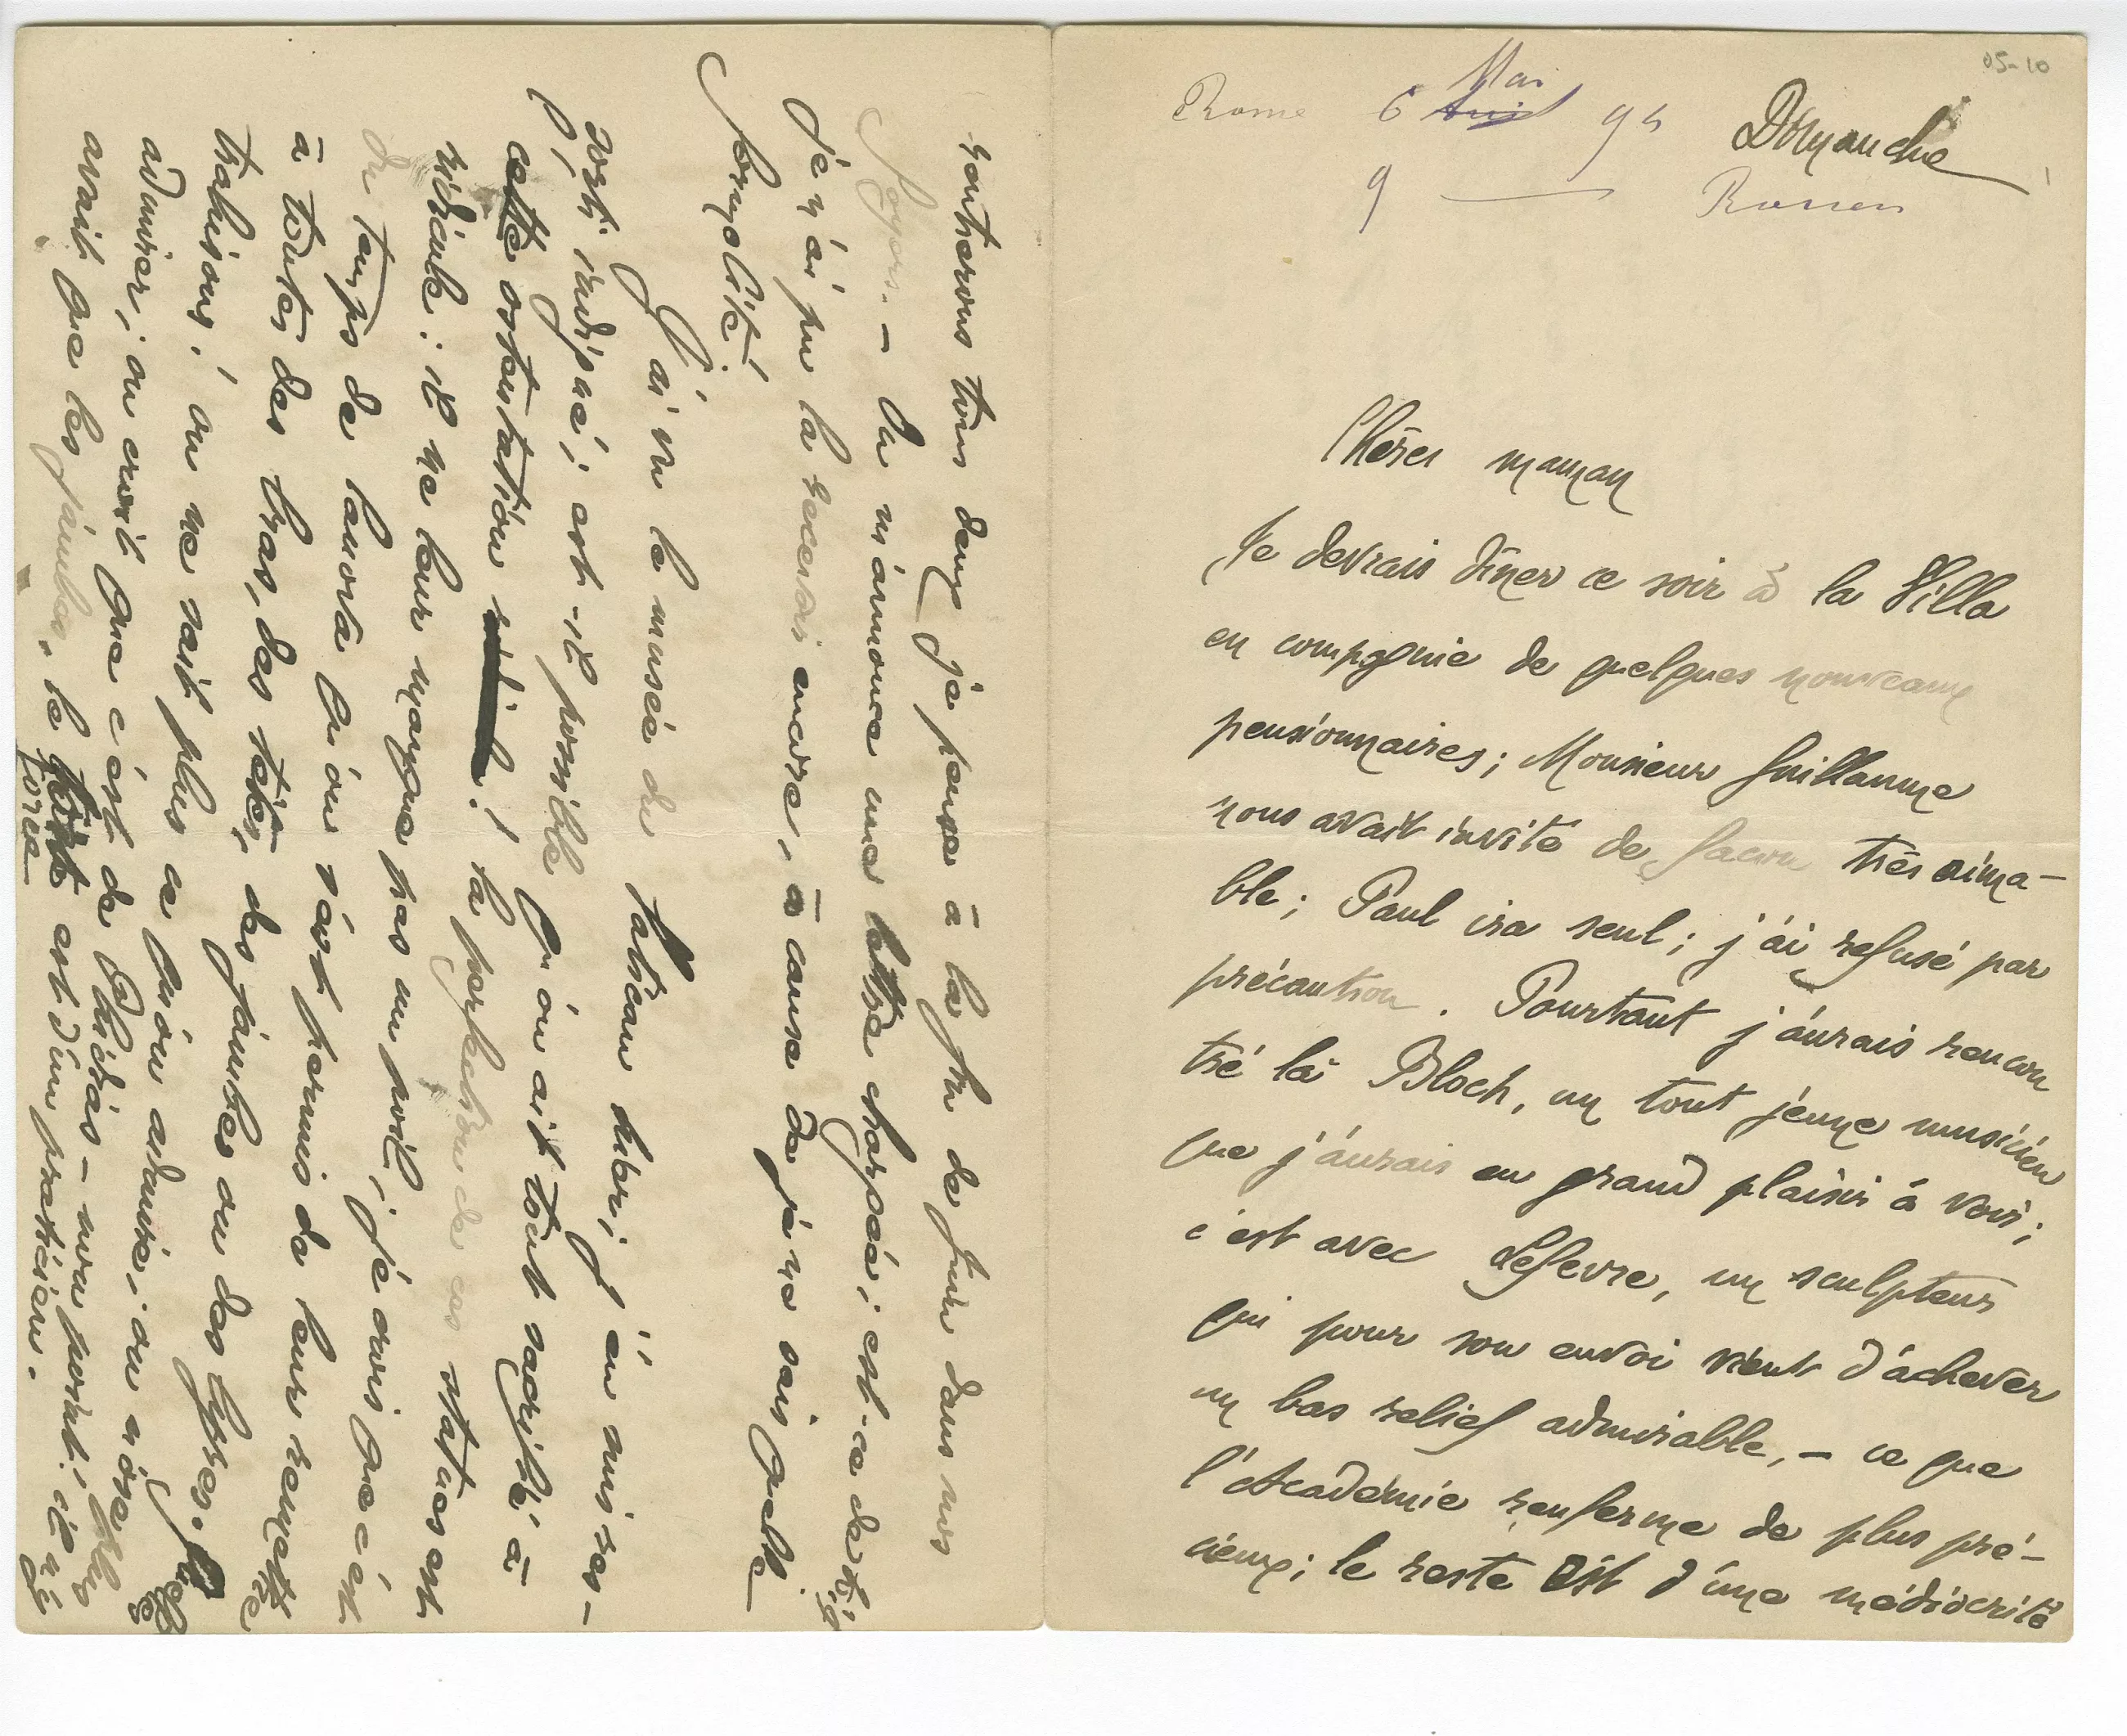 05-10
Rome 6 Avril Mai 94 Dimanche
9 — Rouen
Chère maman
Je devrais dîner ce soir à la Villa
en compagnie de quelques nouveaux
pensionnaires; Monsieur Guillaume
nous avait invité de façon très aima-
ble; Paul ira seul; j'ai refusé par
précaution. Pourtant j'aurais rencon
tré là Bloch, un tout jeune musicien
que j'aurais eu grand plaisir à voir;
c'est avec Lefevre, un sculpteur
qui pour son envoi vient d'achever
un bas relief admirable, – ce que
l'Académie renferme de plus pré-
cieux; le reste est d'une médiocrité
rentrerons tous deux je pense à la fin de juin dans nos
foyers. – Tu m'annonce une lettre chargée; est-ce de
je n'ai pu la recevoir encore, à cause de je ne sais quelle
formalité.
J'ai vu le musée du Vatican hier; j'en suis res-
sorti indigné; est-il possible qu'on ait tout sacrifié à
cette ostentation! la perfection de ces statues est
ridicule: il ne leur manque pas un poil; je crois que c'est
du temps de Canova qu'on s'est permis de leur remettre
à toutes des bras, des têtes, des jambes ou des gypses.
trahisons; on ne sait plus ce qu'on admire; on n'ose plus
admirer; on croit que c'est de Phidias – mon portrait; il n'y
avait que les jambes, le torse est d'un praticien.